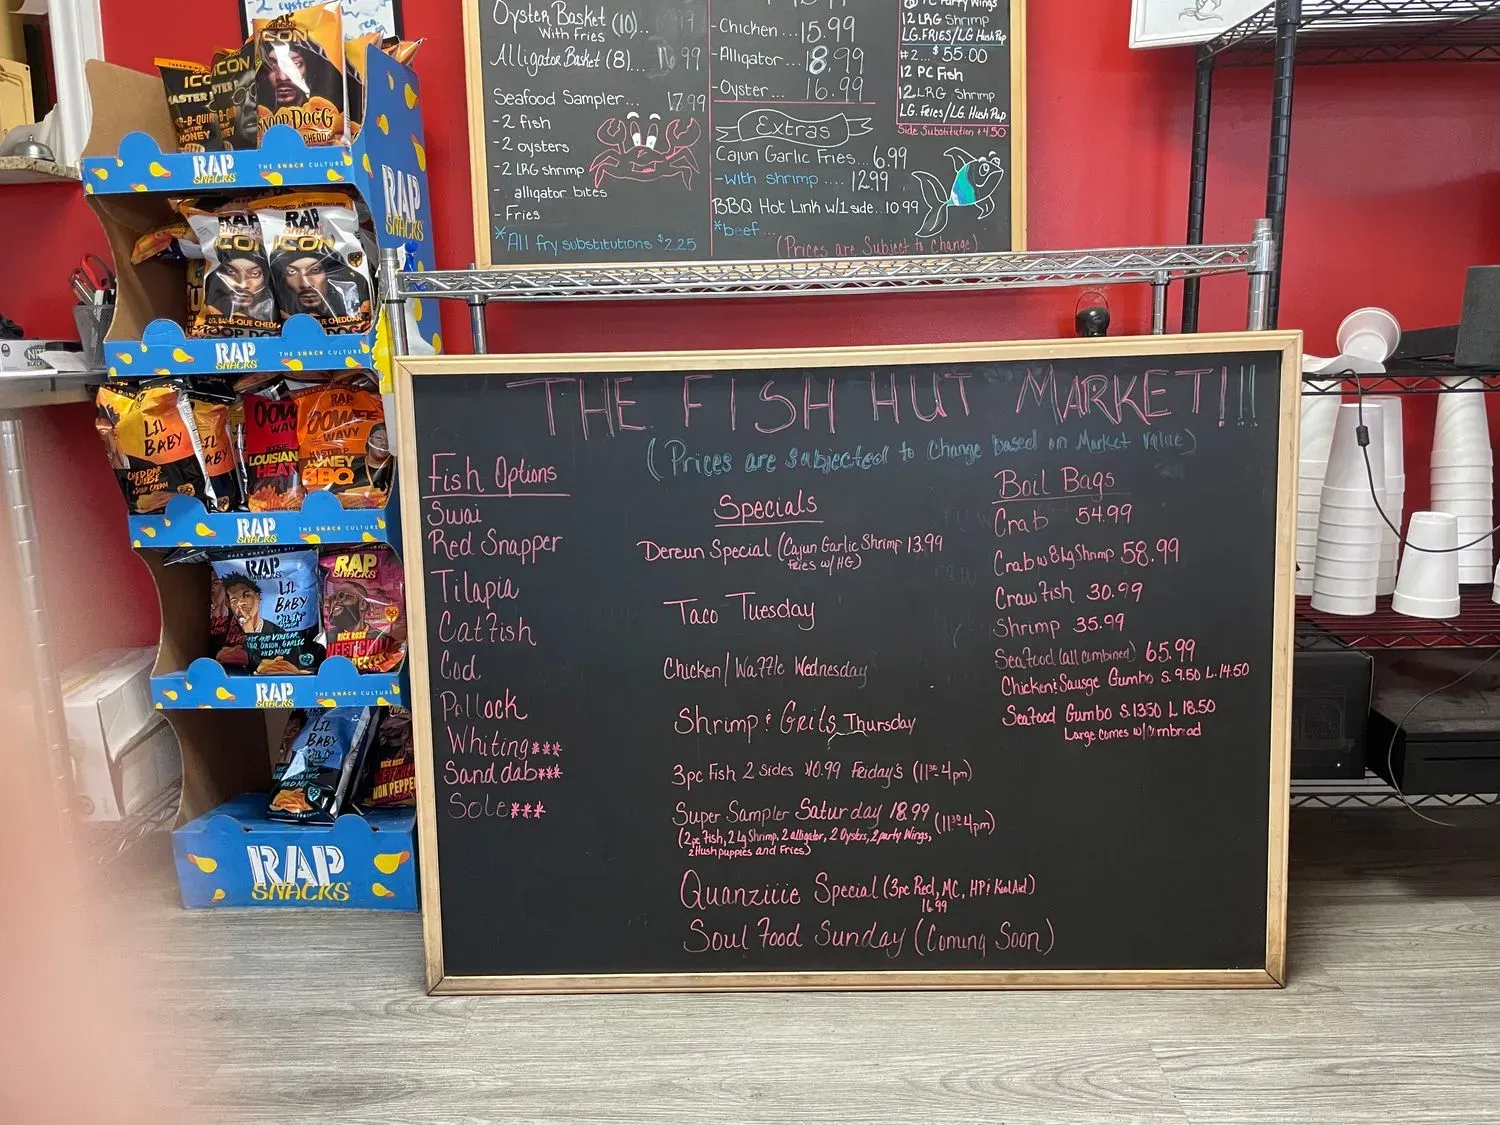 Oyster Basket (10)...
With Fries
Alligator Basket (8)... 16.99
Seafood Sampler... 17.99
-2 fish
-2 oysters
-2 LRG shrimp
- alligator bites
- Fries
*All fry substitutions $2.25
-Chicken... 15.99
-Alligator... 18.99
-Oyster... 16.99
Extras
Cajun Garlic Fries... 6.99
-with shrimp .... 12.99
BBQ Hot Link w/1 side.. 10.99
*beef...
(Prices are Subject to change)
12 LRG Shrimp
LG. FRIES/LG Hush Pup
#2... $55.00
12 PC Fish
12 LRG Shrimp
LG. Fries/LG. Hush Pup
Side Substitution +4.50
THE FISH HUT MARKET!!!
(Prices are subjected to change based on Market Value)
Fish Options
Swai
Red Snapper
Tilapia
Catfish
Cod
Pollock
Whiting***
Sand dab***
Sole***
Specials
Dereun Special (Cajun Garlic Shrimp 13.99
fries w/HG)
Taco Tuesday
Chicken/Waffle Wednesday
Shrimp & Grits Thursday
3pc Fish 2 sides $10.99 Friday's (11:30-4pm)
Super Sampler Saturday 18.99 (11:30-4pm)
(2pc Fish, 2 Lg Shrimp, 2 alligator, 2 Oysters, 2 party Wings,
2 Hushpuppies and Fries)
Quanziiie Special (3pc Red, MC, HP & Kool Aid)
16.99
Soul Food Sunday (Coming Soon)
Boil Bags
Crab 54.99
Crab w 8 lg Shrimp 58.99
Crawfish 30.99
Shrimp 35.99
Seafood (all combined) 65.99
Chicken & Sausge Gumbo S. 9.50 L. 14.50
Seafood Gumbo S. 13.50 L 18.50
Large comes w/ Cornbread
RAP SNACKS
THE SNACK CULTURE
ICON
SNOOP DOGG
CHEDDAR
HONEY
RAP SNACKS
RAP
ICON
RAP
ICON
RAP SNACKS
THE SNACK CULTURE
LIL BABY
CHEDDAR CHEESE
SOUR CREAM
LOUISIANA HEAT
RAP
OOWEE WAVY
HONEY BBQ
RAP SNACKS
THE SNACK CULTURE
RAP
LIL BABY
RAP SNACKS
RICK ROSS
RAP SNACKS
THE SNACK CULTURE
LIL BABY
RAP SNACKS